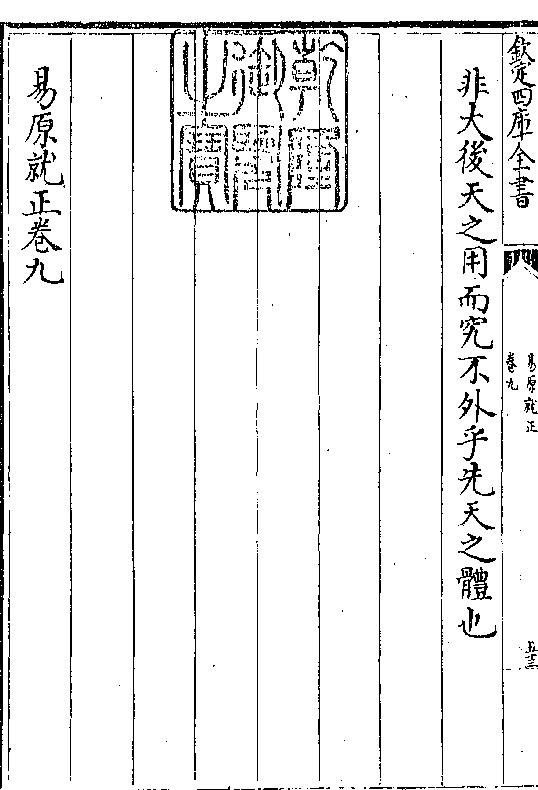 欽定四庫全書
易原就正
卷九
五十三
非大後天之用而究不外乎先天之體也
乾隆御覽之寶
易原就正卷九